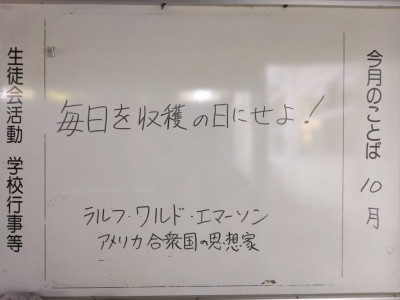 今月のことば 10月
毎日を収獲の日にせよ!
ラルフ・ワルド・エマーソン
アメリカ合衆国の思想家
生徒会活動 学校行事等